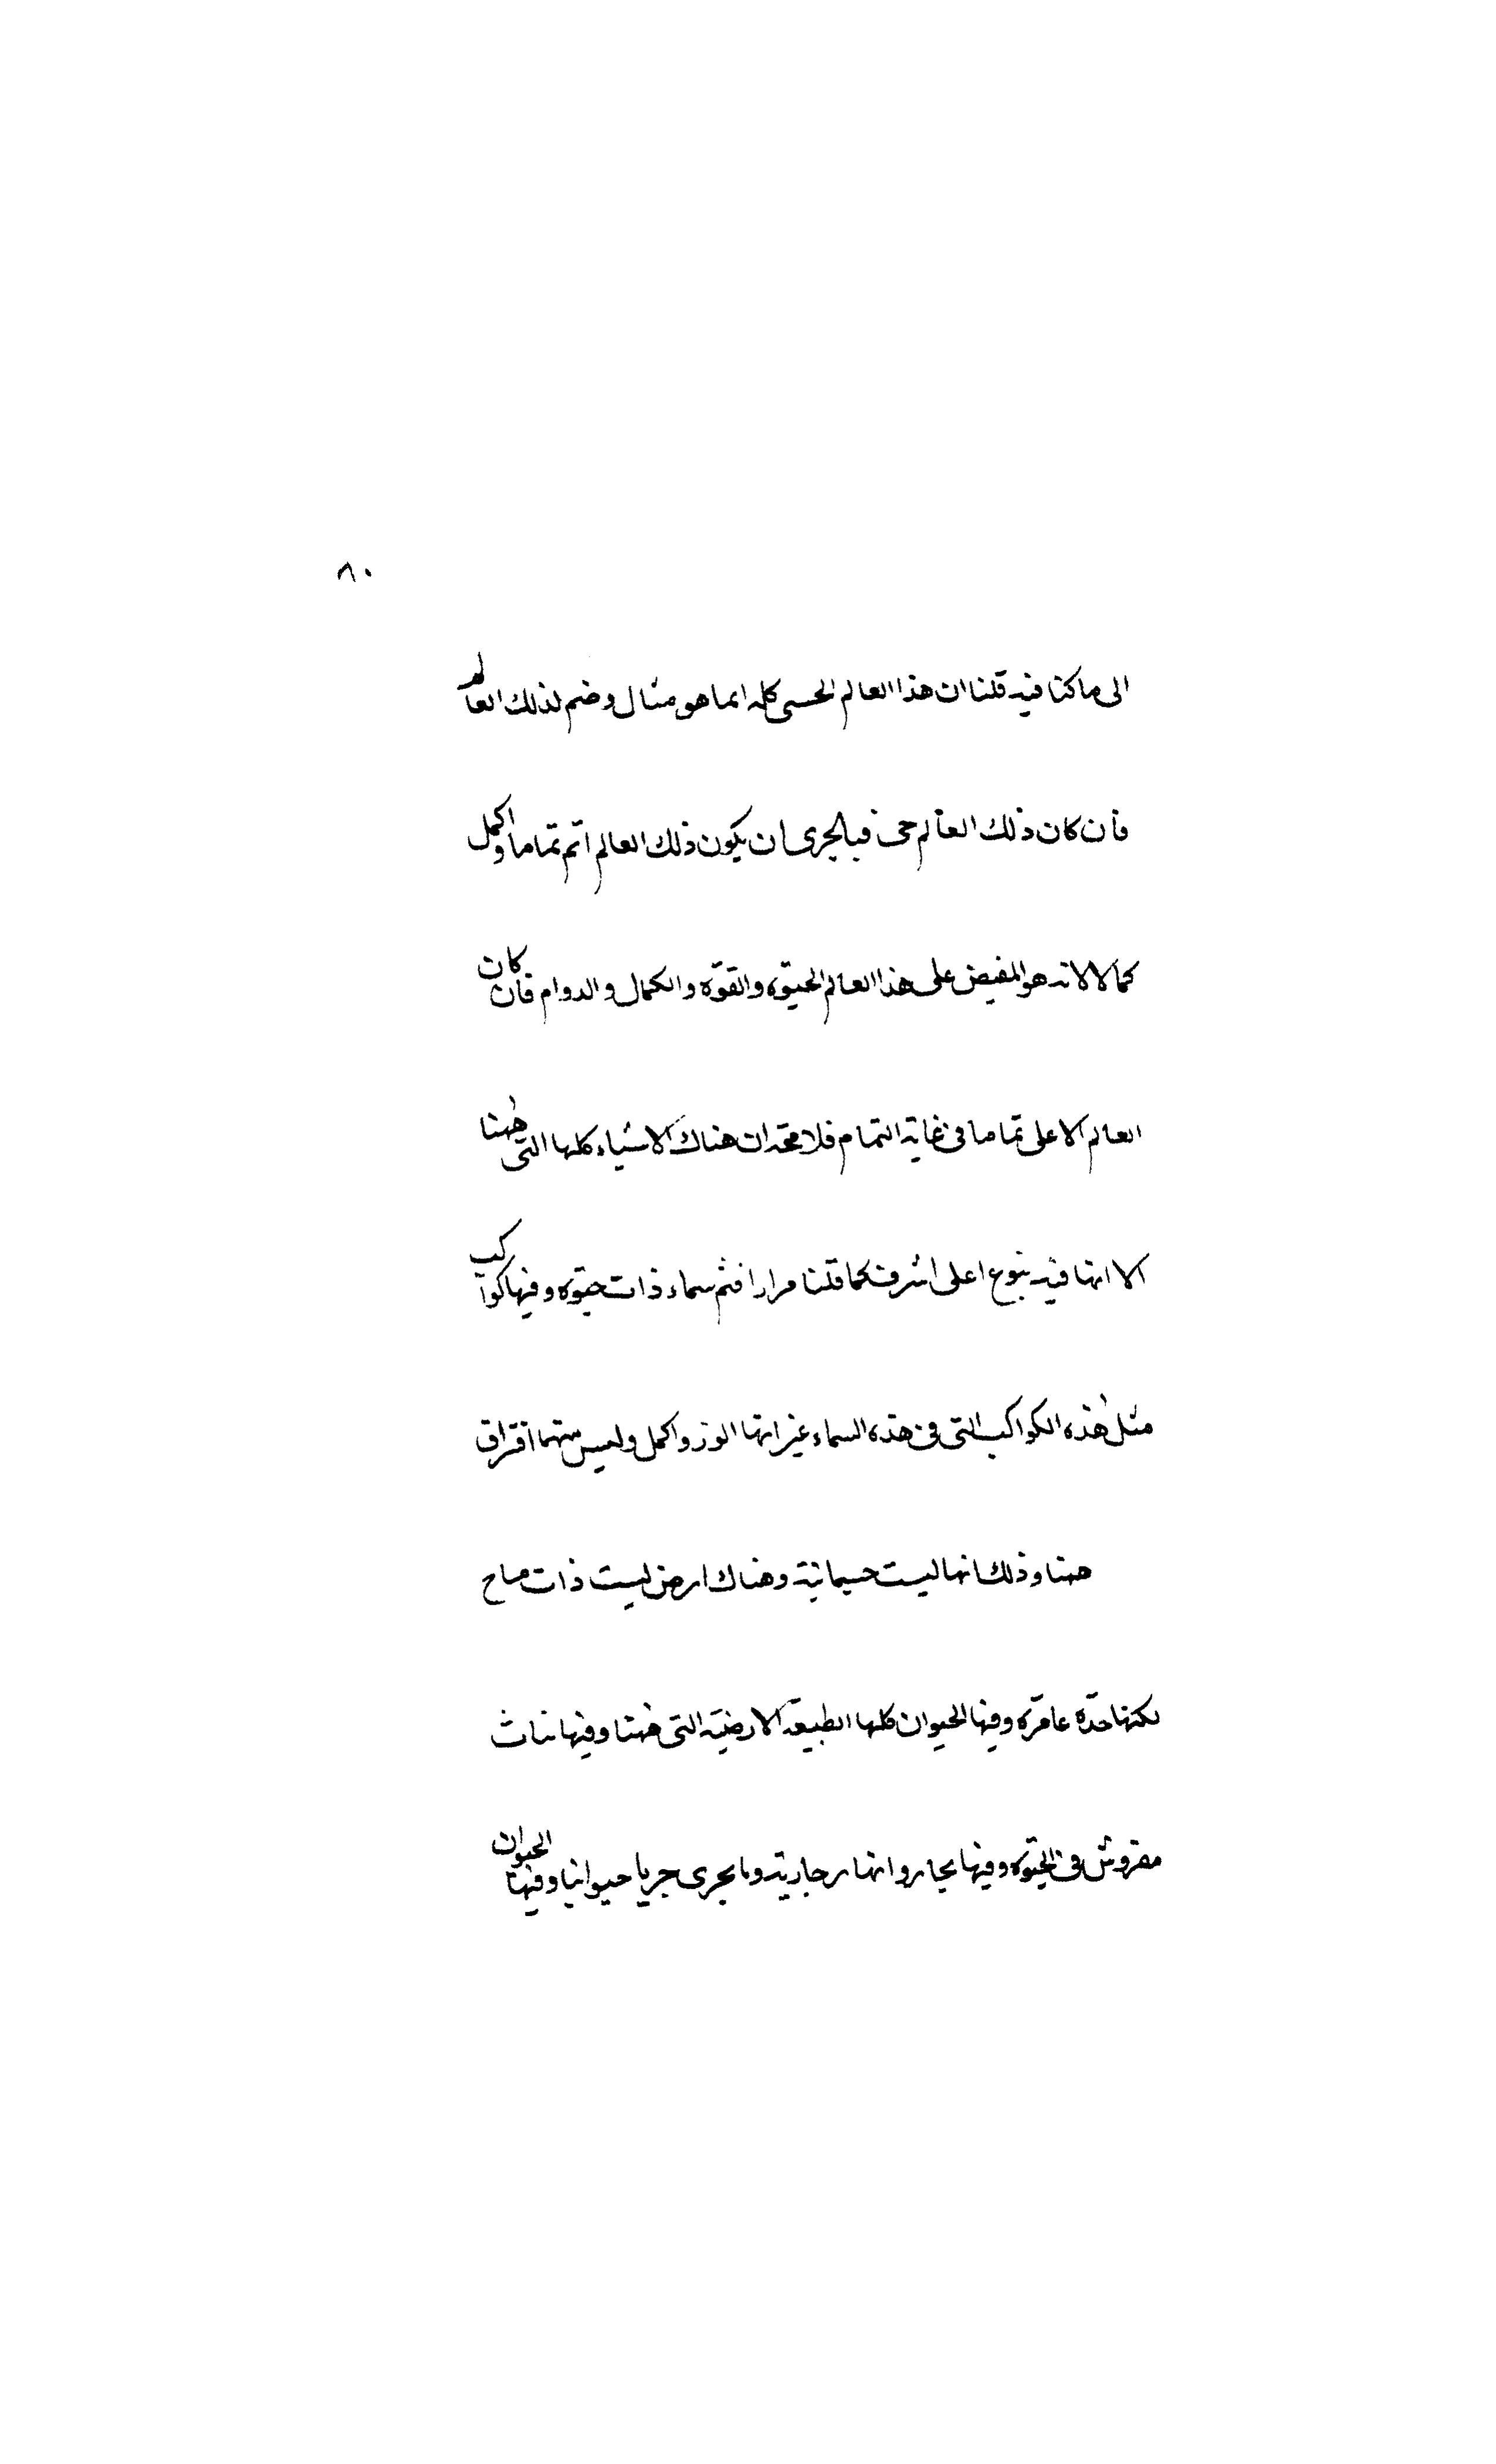 ٨٠
الى ما كنا فيه قلنا ان هذا العالم الحسى كله انما هو مثال وضم لذلك العالم
فان كان ذلك العالم حى فبالحرى ان يكون ذلك العالم اتم تماما واكمل
كمالا لانه هو المفيض على هذا العالم الحيوة والقوة والكمال والدوام فان كان
العالم الاعلى تماما فى غاية التمام فلا محة ان هناك الاشياء كلها التى ههنا
الا انها فيه بنوع اعلى اشرف كما قلنا مرارا فثم سماء ذات حيوة وفيها كواكب
مثل هذه الكواكب التى فى هذه السماء غير انها انور واكمل وليس بينهما افتراق
ههنا وذلك انها ليست جسمانية وهناك ارض ليست ذات سباح
لكنها حية عامرة وفيها الحيوان كلها الطبيعة الارضية التى ههنا وفيها نبات
مغروش فى الحيوة وفيها بحار وانهار جارية وما يجرى جريا حيوانيا وفيها الحيوان